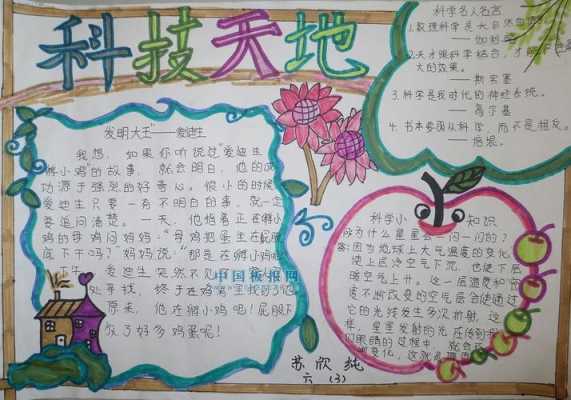 科技天地
发明大王"——爱迪生
我想，如果你听说过"爱迪生
孵小鸡"的故事，就会明白，他的成
功源于强烈的好奇心。很小的时候
爱迪生只要一有不明白的事，就一定
要追问清楚。一天，他指着正在孵小
鸡的母鸡问妈妈："母鸡把蛋坐在屁股
底下干吗？"妈妈说："那是在孵小鸡呢
爱迪生突然不见了
处寻找，终于在鸡窝里找到了他
原来，他在孵小鸡呢！屁股下
放了好多鸡蛋呢！
中国板报网
科学名人名言
1.数理科学是大自然的语言。
——伽利略
2.天才与科学结合，才能
大的效果。
——斯宾塞
3.科学是我时代的神经系统。
——高尔基
4.书本要服从科学，而不是相反。
——培根。
科学小知识
为什么星星会一闪一闪的？
答：因为地球上大气温度的变化，
使上层冷空气下沉，也使下层
暖空气上升。这一层温度和密
度不断改变的空气层会使通过
它的光线发生多次折射，这
样，星星发射的光在传到我
们眼睛的过程中，就会
变化，这就
苏欣纯
六（3）